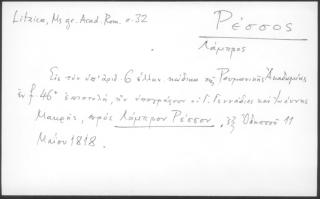 Litzica, Ms gr. Acad. Rom. σ. 32
Ρέσσος
Λάμπρος
Εἰς τὸν ὑπ' ἀριθ. 6 ἑλλην. κώδικα τῆς Ρουμανικῆς Ἀκαδημίας
ἐν f. 46α ἐπιστολή, ἣν ὑπογράφουν οἱ Γ. Γεννάδιος καὶ Ἰωάννης
Μακρῆς, πρὸς Λάμπρον Ρέσσον, ἐξ Ὀδησσοῦ 11
Μαΐου 1818.